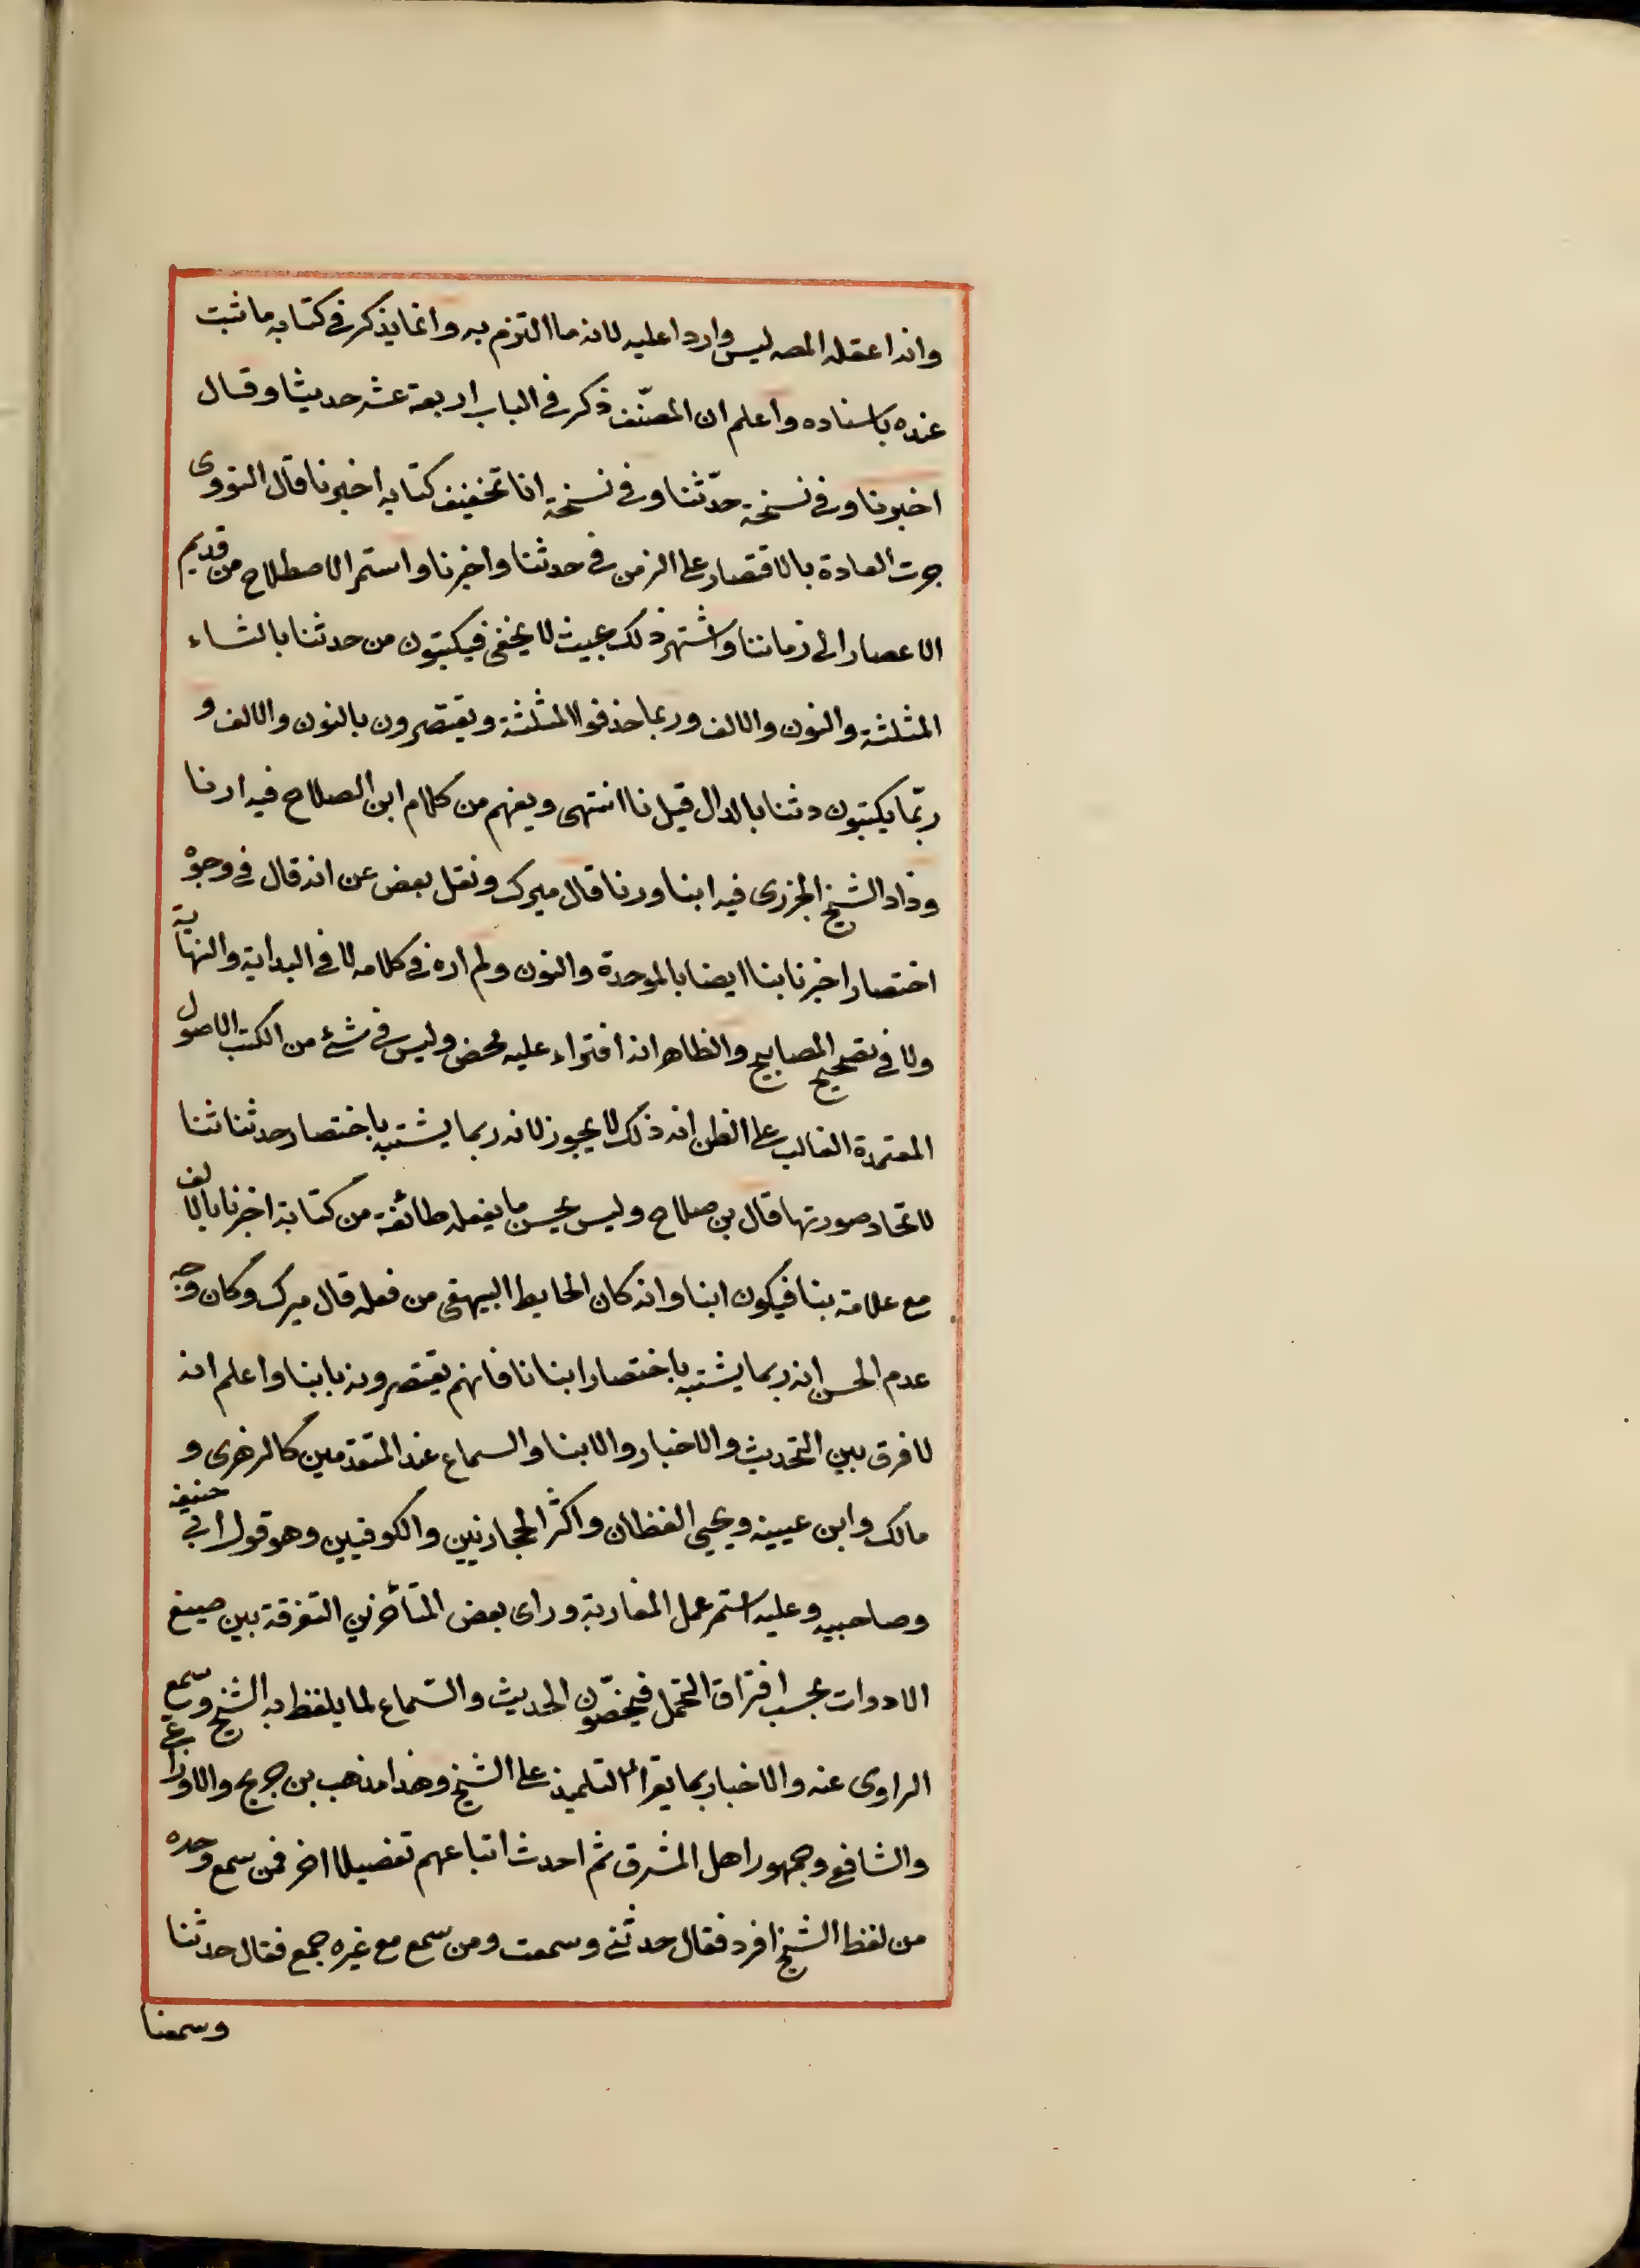 وانه اعقله المصه ليس واردا عليه لانه ما التزم به وانما يذكر في كتابه ما ثبت
عنده باسناده واعلم ان المصنّف ذكر في الباب اربعة عشر حديثا وقال
اخبرنا وفي نسخة حدّثنا وفي نسخة انا تخفيف كتابه اخبرنا قال النووى
جرت العادة بالاقتصار على الرمز في حدثنا واخبرنا واستمر الاصطلاح من قديم
الاعصار الى زماننا واشتهر ذلك بحيث لا يخفى فيكتبون من حدثنا بالثاء
المثلثة والنون والالف وربما حذفوا المثلثة ويقتصرون بالنون والالف و
ربّما يكتبون دثنا بالدال قبل نا انتهى ويفهم من كلام ابن الصلاح فيه ارنا
وزاد الشيخ الجزرى فيه ابنا ورنا قال ميرك ونقل بعض عن انه قال في وجوه
اختصار اخبرنا بنا ايضا بالموحدة والنون ولم اره في كلامه لا في البداية والنهاية
ولا في تصحيح المصابيح والظاهر انه افتراء عليه محض وليس في شئ من الكتب الاصول
المعتمدة الغالب على الظن انه ذلك لا يجوز لانه ربما يشتبه باختصار حدثنا ثنا
لاتحاد صورتها قال بن صلاح وليس بحسن ما يفعله طائفة من كتابة اخبرنا بالالف
مع علامة بنا فيكون ابنا وانه كان الحايط البيهقى من فعله قال ميرك وكان وجه
عدم الحسن انه ربما يشتبه باختصار ابنانا فانهم يقتصرونه بابنا واعلم انه
لا فرق بين التحديث والاخبار والابنا والسماع عند المتقدمين كالزهرى و
مالك وابن عيينه ويحيى القطان واكثر الحجازيين والكوفيين وهو قول ابى حنيفه
وصاحبيه وعليه استمر عمل المغاربة وراى بعض المتأخرين التفرقة بين صيغ
الادوات بحسب افتراق التحمل فيخصّون الحديث والسّماع لما يلفظ به الشيخ وسمع
الراوى عنه والاخبار بما يقرأ التلميذ على الشيخ وهذا مذهب بن جريج والاوزاعى
والشافعى وجمهور اهل المشرق ثم احدث اتباعهم تفصيلا اخر فمن سمع وحده
من لفظ الشيخ افرد فقال حدثنى وسمعت ومن سمع مع غيره جمع فقال حدثنا
وسمعنا